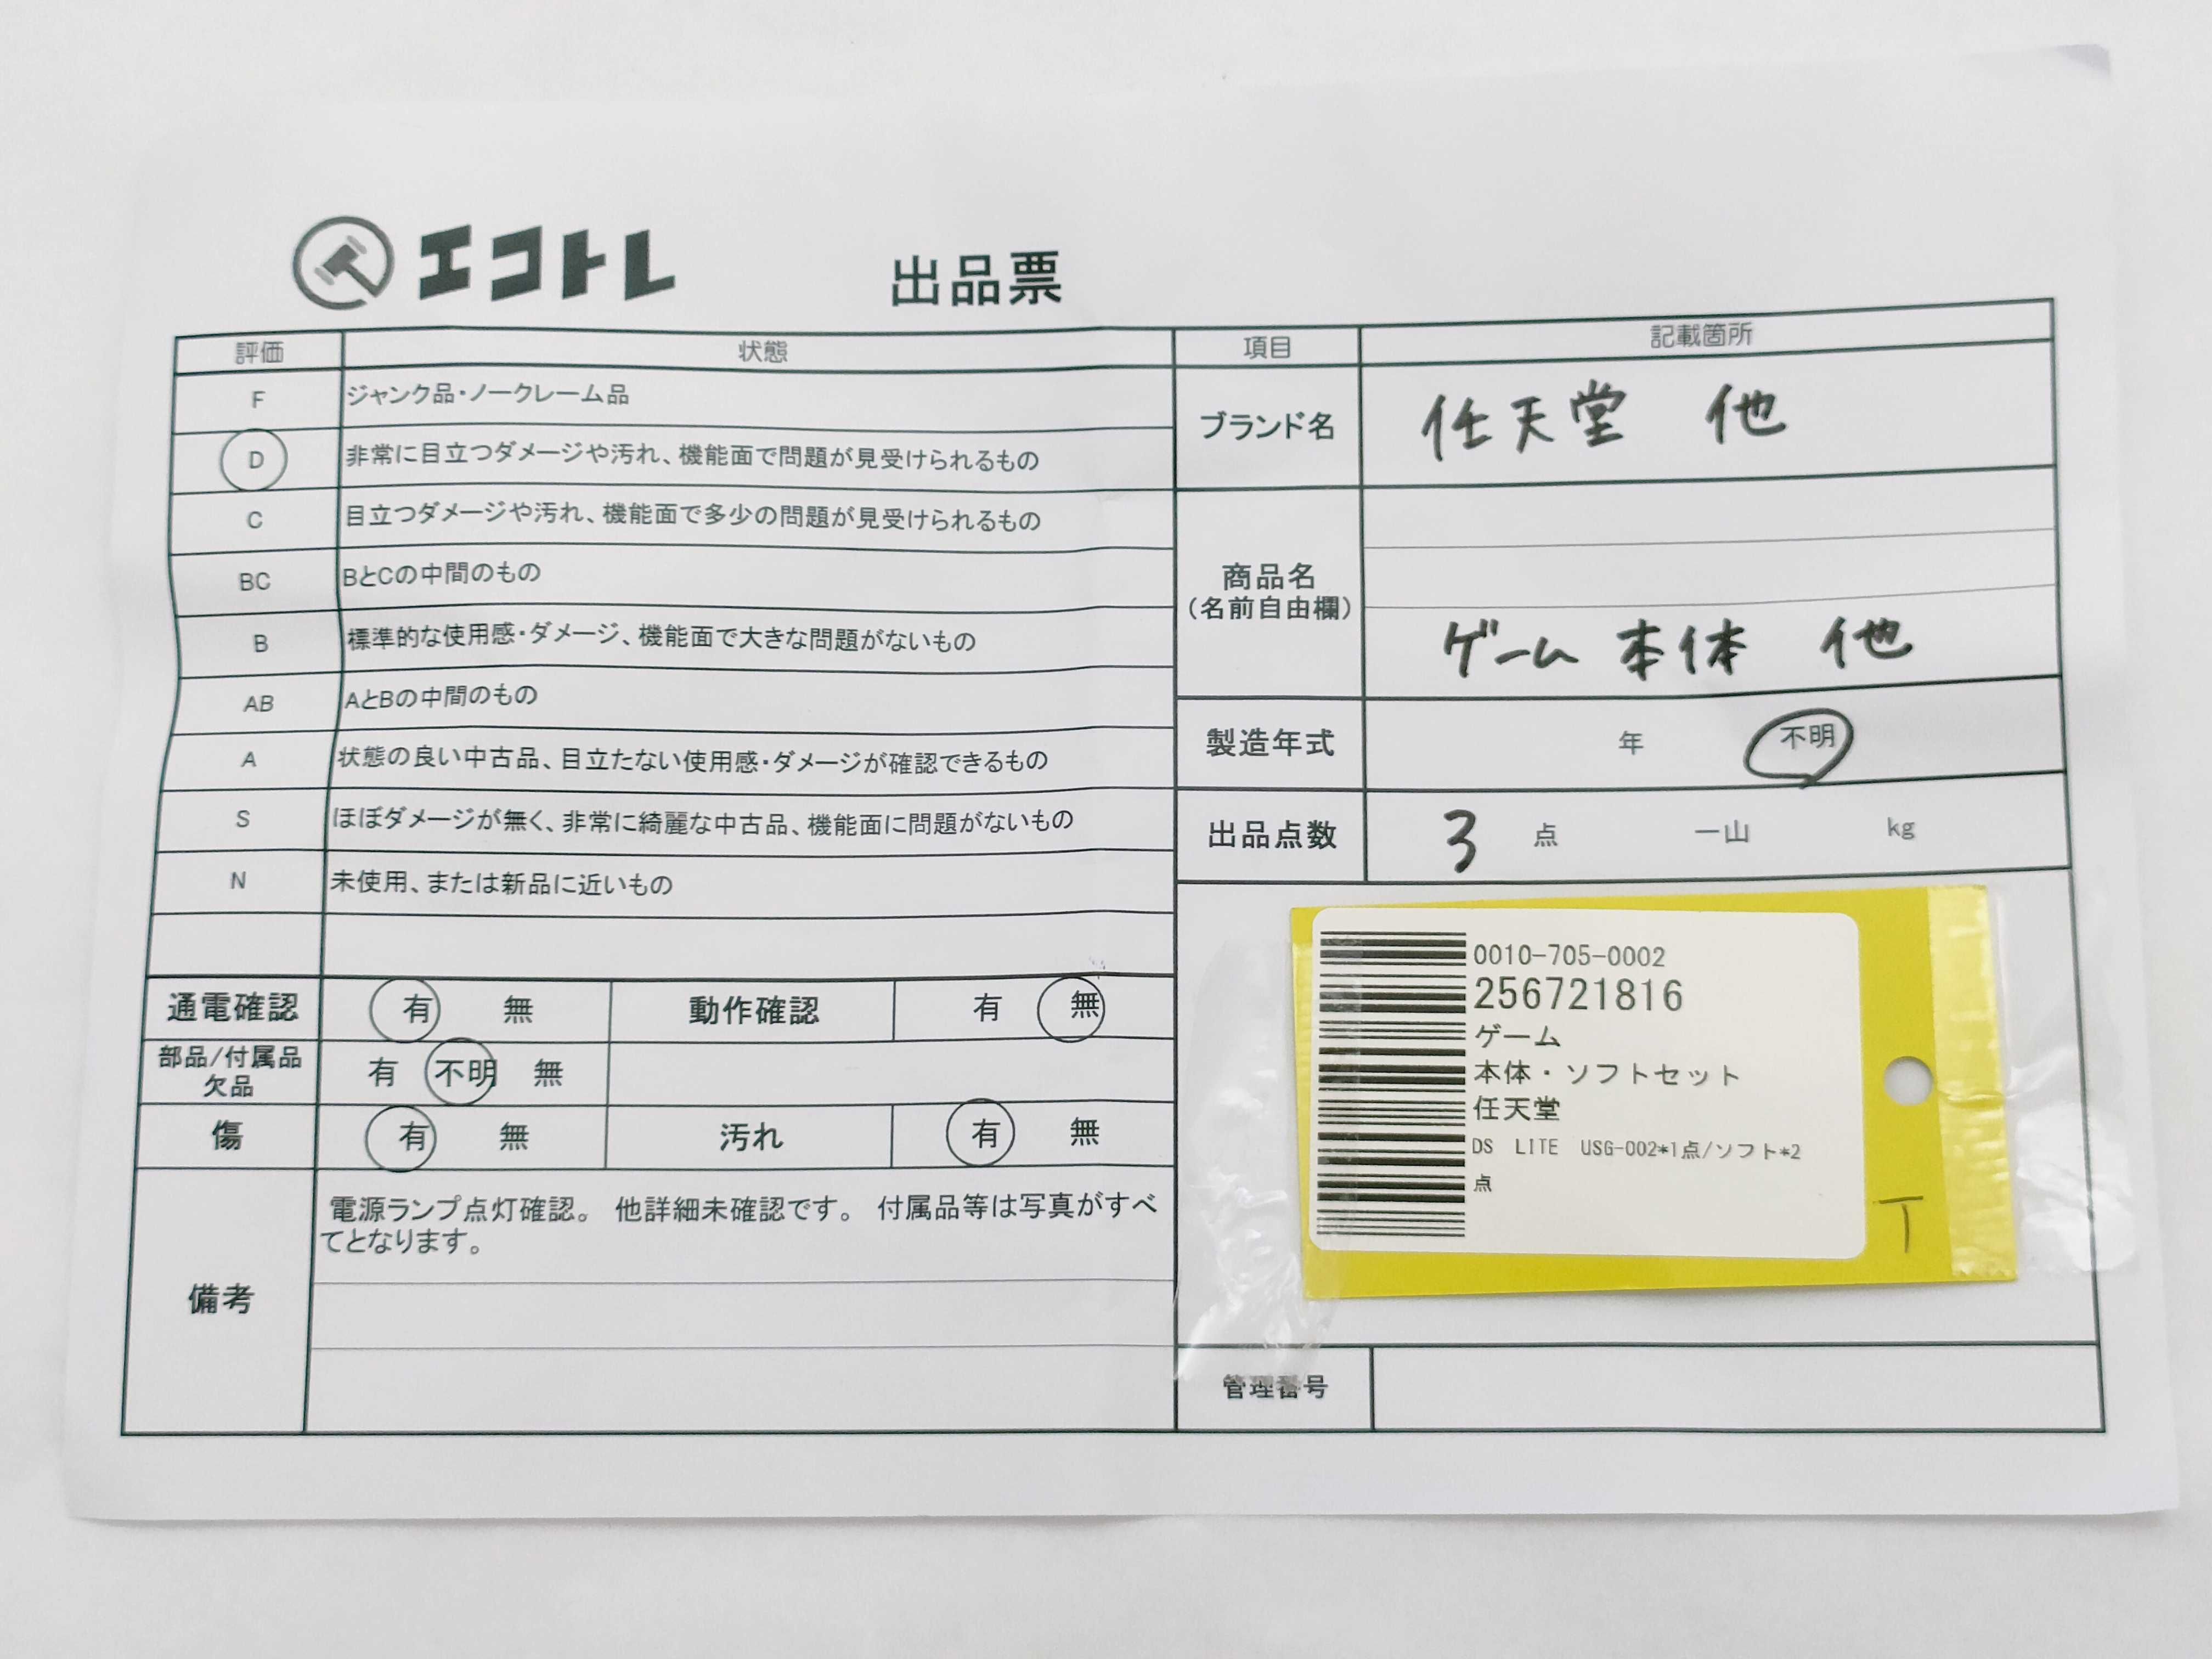 エコトレ 出品票
評価 状態
F ジャンク品・ノークレーム品
D 非常に目立つダメージや汚れ、機能面で問題が見受けられるもの
C 目立つダメージや汚れ、機能面で多少の問題が見受けられるもの
BC BとCの中間のもの
B 標準的な使用感・ダメージ、機能面で大きな問題がないもの
AB AとBの中間のもの
A 状態の良い中古品、目立たない使用感・ダメージが確認できるもの
S ほぼダメージが無く、非常に綺麗な中古品、機能面に問題がないもの
N 未使用、または新品に近いもの
通電確認 有 無 動作確認 有 無
部品/付属品
欠品 有 不明 無
傷 有 無 汚れ 有 無
備考
電源ランプ点灯確認。 他詳細未確認です。 付属品等は写真がすべ
てとなります。
項目 記載箇所
ブランド名 任天堂 他
商品名
(名前自由欄)
ゲーム 本体 他
製造年式 年 不明
出品点数 3 点 一山 kg
0010-705-0002
256721816
ゲーム
本体・ソフトセット
任天堂
DS LITE USG-002*1点/ソフト*2
点
T
管理番号